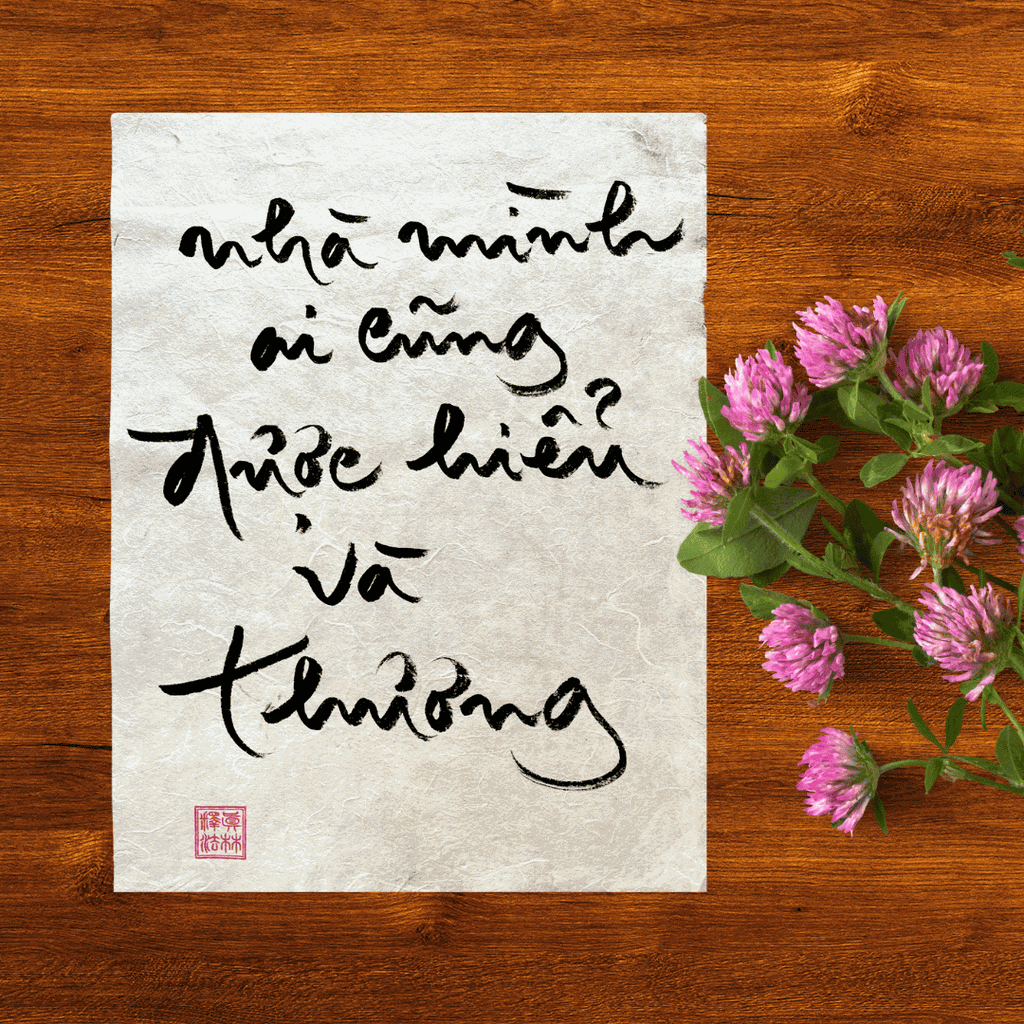 nhà mình
ai cũng
được hiểu
và
thương
真林
釋法